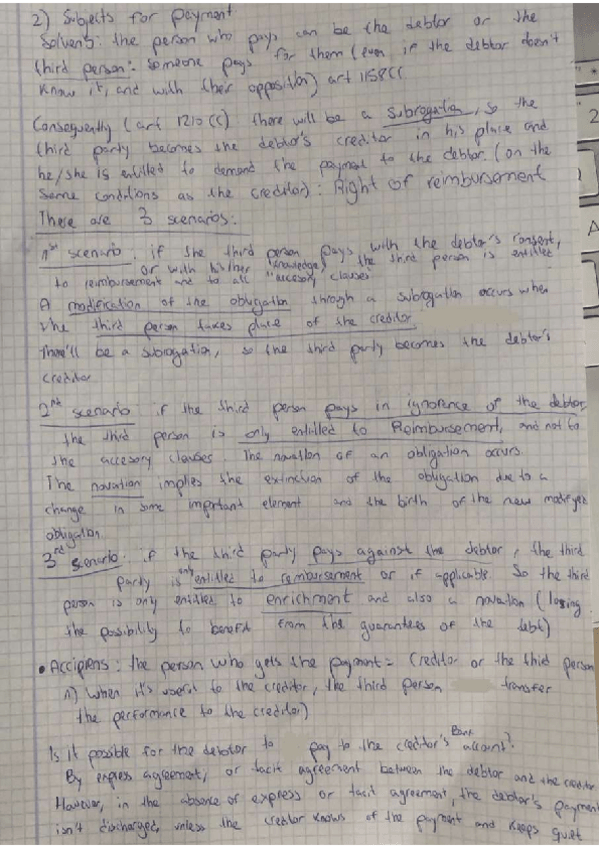 2) Subjects for payment
Solvens: the person who pays can be the debtor or the
third person: someone pays for them (even if the debtor doesn't
know it, and with their opposition) art 1158CC
Consequently (art 1210 CC) there will be a subrogation, so the
third party becomes the debtor's creditor in his place and
he/she is entitled to demand the payment to the debtor. (on the
same conditions as the creditor): Right of reimbursement
There are 3 scenarios:
1st scenario: if the third person pays with the debtor's consent,
or with his/her "knowledge", the third person is entitled
to reimbursement and to all "accesory clauses"
A modification of the obligation through a subrogation occurs when
the third person takes place of the creditor
There'll be a subrogation, so the third party becomes the debtor's
creditor
2nd scenario: if the third person pays in ignorence of the debtor,
the third person is only entitled to Reimbursement, and not to
the accesory clauses. The novation of an obligation occurs.
The novation implies the extinction of the obligation due to a
change in some important element and the birth of the new modifyed
obligation.
3rd scenario: if the third party pays against the debtor, the third
party is only entitled to reimbursement or if applicable. So the third
person is only entitled to enrichment and also a novation (losing
the possibility to benefit from the guarantees of the debt)
• Accipiens: the person who gets the payment = Creditor or the third person
1) When it's useful to the creditor, the third person transfer
the performance to the creditor)
Is it possible for the debtor to pay to the creditor's Bank account?
By express agreement, or tacit agreement between the debtor and the creditor
However, in the absence of express or tacit agreement, the debtor's payment
isn't discharged, unless the creditor knows of the payment and keeps quiet